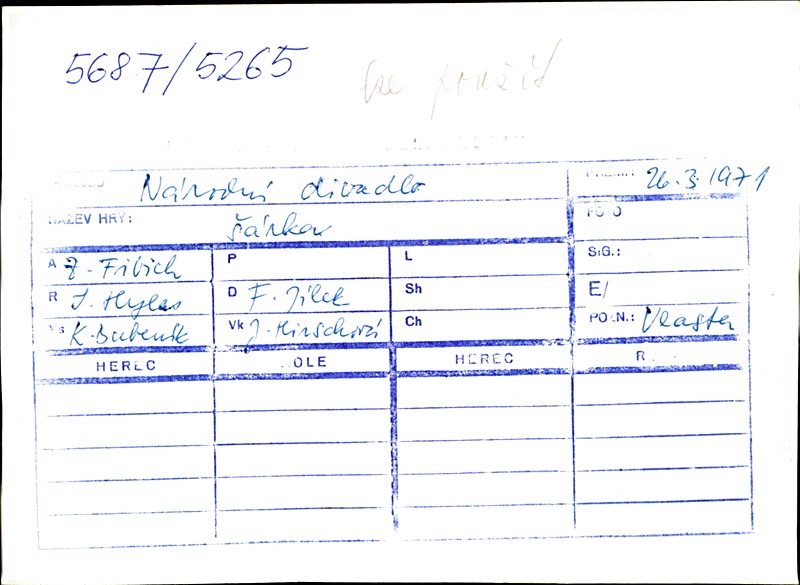 5687/5265
lze použít
Národní divadlo
26.3.1971
NÁZEV HRY: Šárka
FOTO
A Z. Fibich P L SIG.:
R J. Hylas D F. Jílek Sh E/
Vs K. Bubeník Vk J. Hirschová Ch POZN.: Vlasta
HEREC ROLE HEREC